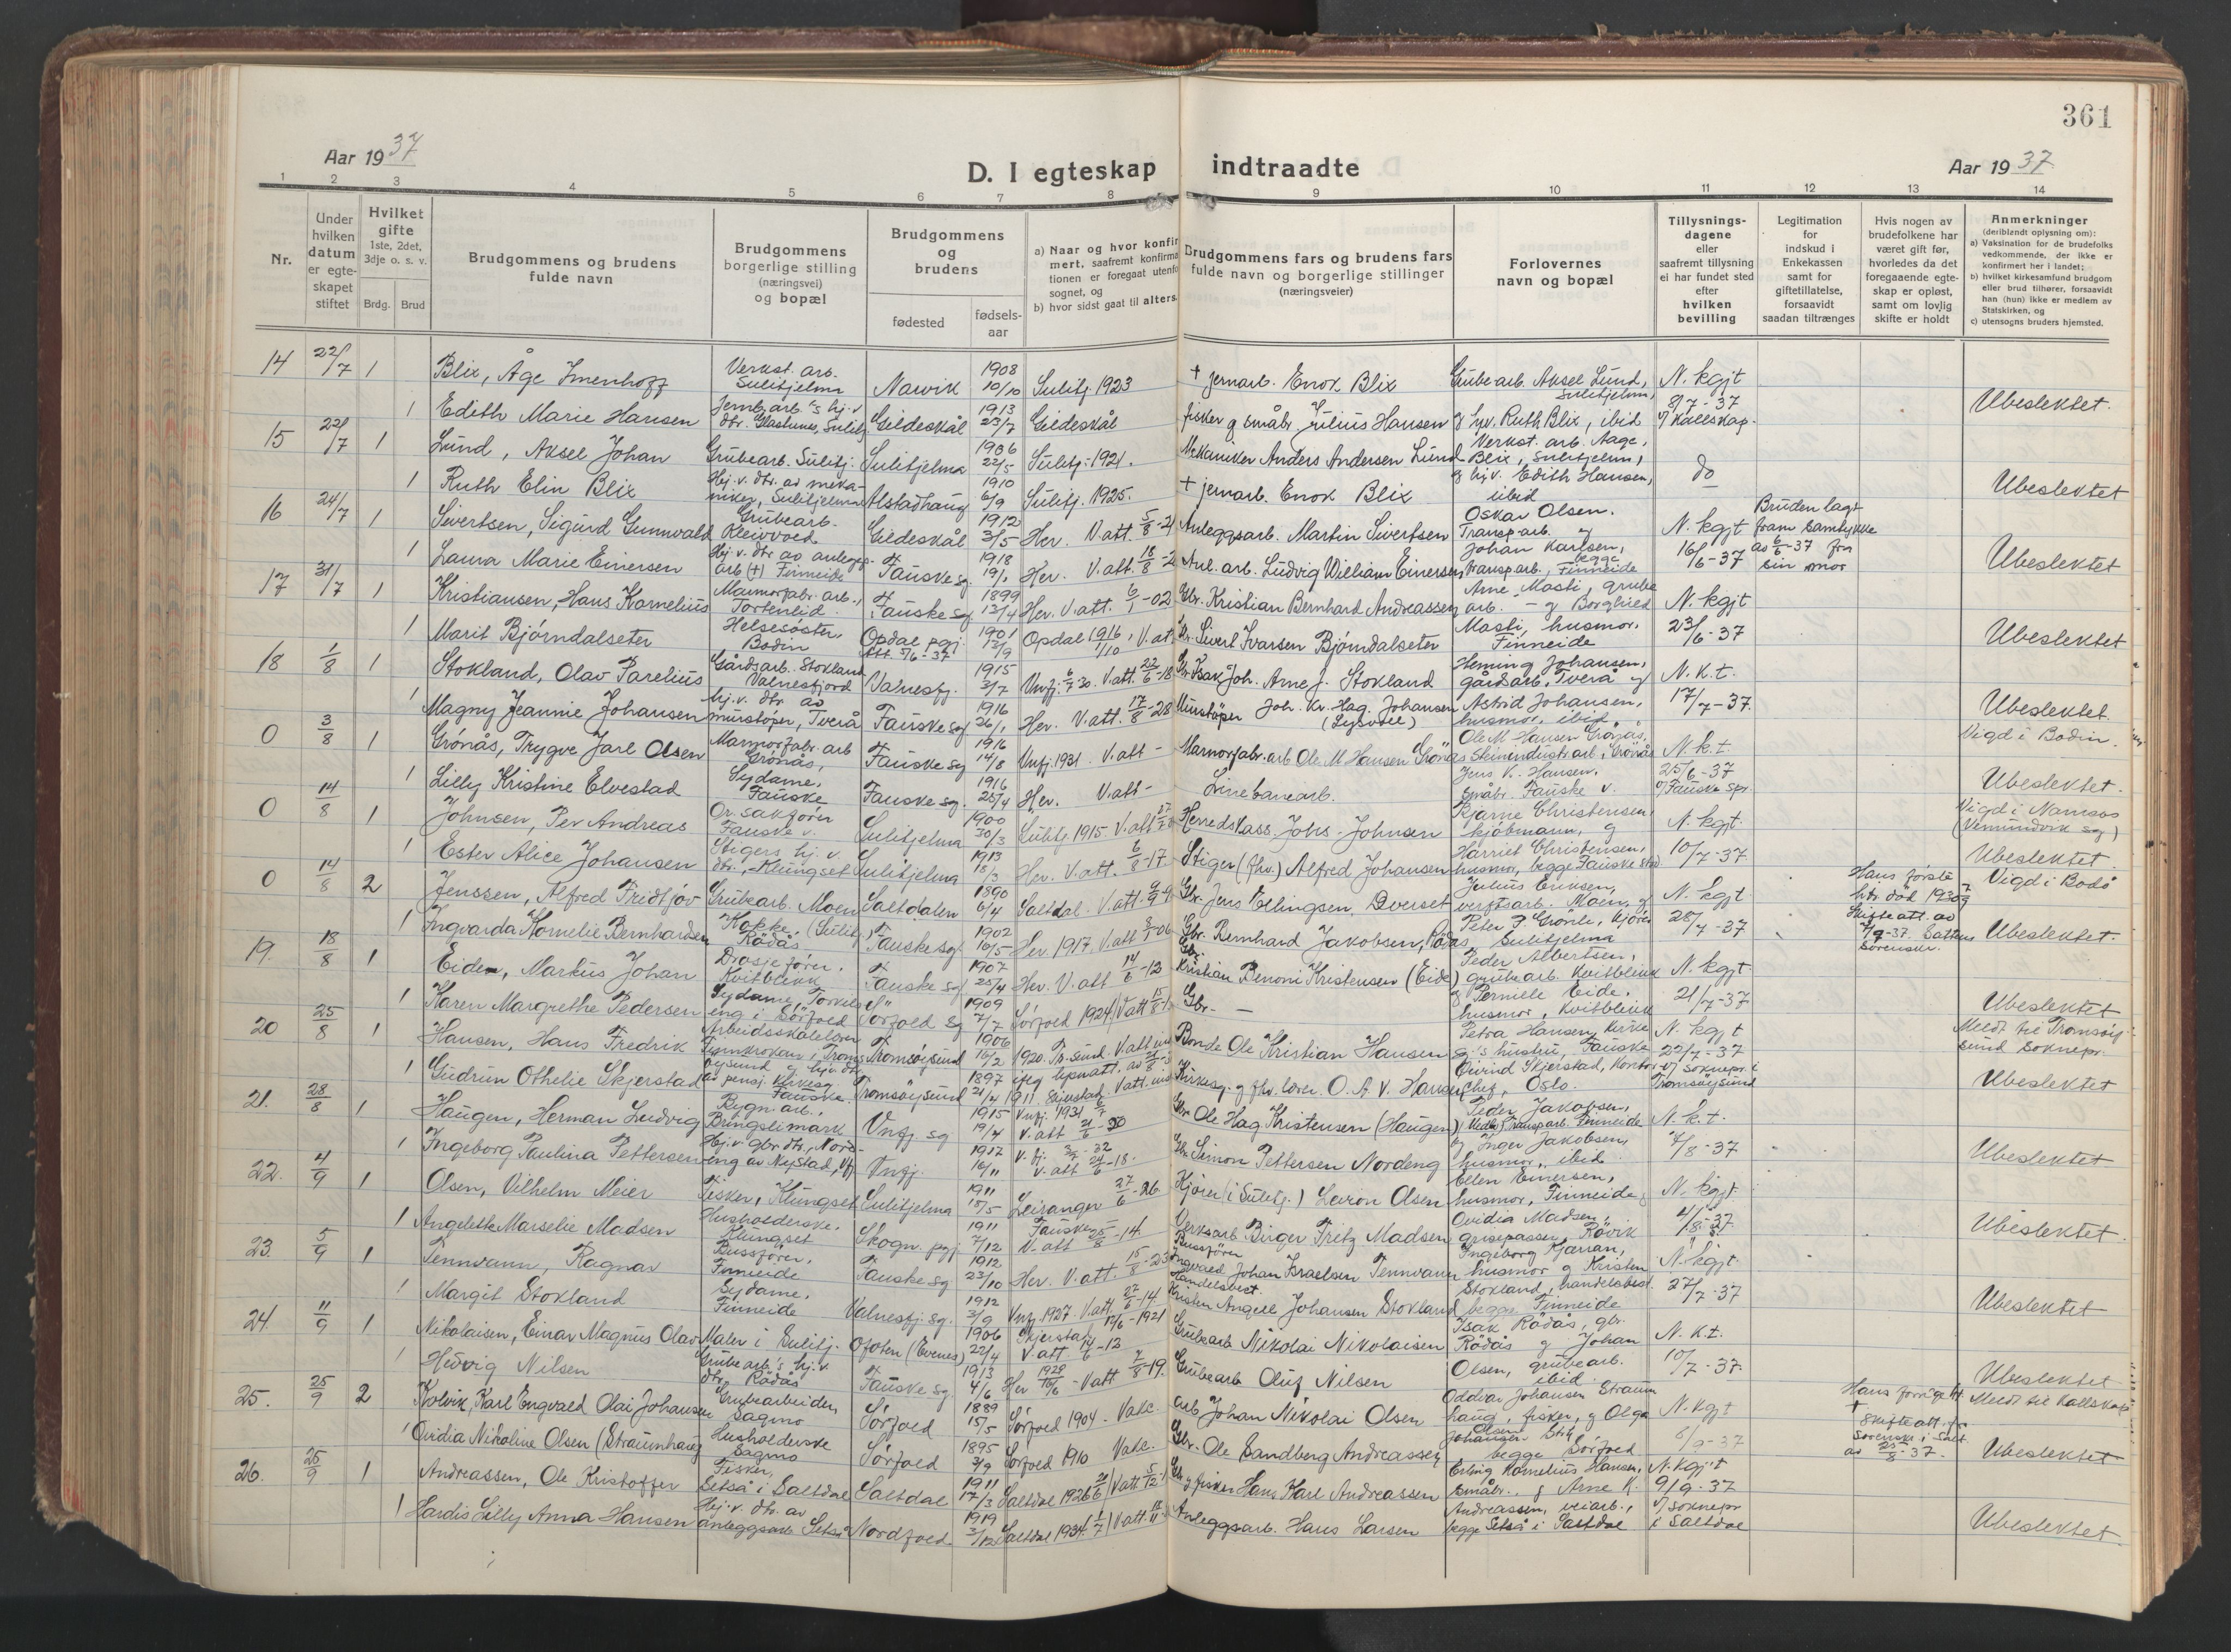 361
Aar 1937
D. I egteskap indtraadte
Aar 1937
1 2 3 4 5 6 7 8 9 10 11 12 13 14
Nr.
Under hvilken datum er egteskapet stiftet
Hvilket gifte
1ste, 2det, 3dje o. s. v.
Brdg. Brud
Brudgommens og brudens fulde navn
Brudgommens borgerlige stilling (næringsvei) og bopæl
Brudgommens og brudens
fødested
fødsels-aar
a) Naar og hvor konfir
mert, saafremt konfirma
tionen er foregaat utenfo
sognet, og
b) hvor sidst gaat til alters.
Brudgommens fars og brudens fars
fulde navn og borgerlige stillinger
(næringsveier)
Forlovernes
navn og bopæl
Tillysnings-
dagene
eller
saafremt tillysning
ei har fundet sted
efter
hvilken
bevilling
Legitimation
for
indskud i
Enkekassen
samt for
giftetillatelse,
forsaavidt
saadan tiltrænges
Hvis nogen av
brudefolkene har
været gift før,
hvorledes da det
foregaaende egte-
skap er opløst,
samt om lovlig
skifte er holdt
Anmerkninger
(deriblandt oplysning om):
a) Vaksination for de brudefolks
vedkommende, der ikke er
konfirmert her i landet;
b) hvilket kirkesamfund brudgom
eller brud tilhører, forsaavidt
han (hun) ikke er medlem av
Statskirken, og
c) utensogns bruders hjemsted.
14 22/7 1 Blix, Åge Imenhoff Verkst. arb. Sulitjelma Narvik 1908 10/10 Sulitj. 1923 + jernarb. Enok Blix Grubearb. Aksel Lund, Sulitjelma, N. kgjt 8/7-37
1 Edith Marie Hansen Gildeskål 1913 23/7 Gildeskål fisker g småbr. Julius Hansen g hv. Ruth Blix, ibid Ubeslektet.
15 22/7 1 Lund, Aksel Johan Grubearb. Sulitj. Sulitjelma 1906 22/5 Sulitj. 1921. Mekaniker Anders Andersen Lund Verkst. arb. Aage Blix, Sulitjelma, do
1 Ruth Elin Blix Hj.v. dtr. av mekaniker, Sulitjelma Alstadhaug 1910 6/9 Sulitj. 1925. + jernarb. Enok Blix g hj.v. Edith Hansen, ibid Ubeslektet
16 24/7 1 Sivertsen, Sigurd Gunnvald Grubearb. Kleivvoed Gildeskål 1912 3/5 Her. V. att. Anleggsarb. Martin Sivertsen Oskar Olsen. Transp. arb. g N. kgjt 16/6-37 Bruden lagt fram samtykke av 6/6-37 fra sin mor
1 Laura Marie Einersen Hj.v. dtr av anleggsarb (+) Finneide Fauske sg. 1918 19/1 Her. V. att. Anl. arb. Ludvig William Einersen Johan Karlsen, transp arb., begge Finneide Ubeslektet
17 31/7 1 Kristiansen, Hans Kornelius Marmorfabr. arb., Tortenlid. Fauske sg 1899 13/4 Her. V. att. 6/1-02 Gbr. Kristian Bernhard Andreassen Arne Mosti, grubearb. - g Borghild N. kgjt 23/6-37
1 Marit Bjørndalseter Helsesøster, Bodin Opdal pgj. 1901 12/9 Opdal 1916 1/10 Gbr. Sivert Ivarsen Bjørndalseter Mosti, husmor, Finneide Ubeslektet
18 1/8 1 Stokland, Olav Parelius Gårdsarb. Stokland Valnesfjord Valnesfj. 1915 3/7 Gbr. Isak Joh. Arne J. Stokland Heming Johansen, gårdsarb. Tverå g N. k. t. 17/7-37.
1 Magny Jeannie Johansen hj.v. dtr. av murstøper, Tverå Fauske sg 1916 26/1 Her. V. att. 17/8-28 Murstøper Joh. Kr. Hag. Johansen Astrid Johansen, husmor, ibid. Ubeslektet.
0 3/8 1 Grønås, Trygve Jarl Olsen Marmorfabr. arb Grønås, Fauske sg 1916 14/8 Vnfj. 1931. V. att - Marmorfabr. arb Ole M Hansen Grønås Ole M Hansen Grønås, Steinindustriarb., Grønås N. k. t. 25/6-37 Vigd i Bodin.
1 Lilly Kristine Elvestad Sydame, Fauske Fauske sg. 1916 25/4 Her. V. att - Linebanearb. Jens K. Hansen, småbr. Fauske v. Ubeslektet.
0 14/8 1 Johnsen, Per Andreas Or. sakfører Fauske v. Sulitjelma 1900 30/3 Sulitj. 1915 V. att Herredskass. Johs. Johnsen Bjarne Christensen, kjøbmann, g N. kgjt. 10/7-37 Vigd i Namsos (Vemundvik sg)
1 Ester Alice Johansen Stigers hj.v. dtr., Klungset Sulitjelma 1913 18/3 Her. V. att. 6/8-17. Stiger (fhv.) Alfred Johansen Harriet Christensen, husmor, begge Fauske Ubeslektet
0 14/8 2 Jenssen, Alfred Fridtjov Grubearb. Moen Saltdalen 1890 6/4 Saltdal. V. att. Gbr. Jens Ellingsen, Dverset Julius Eriksen, verftsarb. Moen, g N. kgjt 28/7-37 Hans første htr. død Skifte att. av 7/9-37. Saltens Sorenskr. Vigd i Bodø
1 Ingvarda Kornelie Bernhardsen Kokke. (Sulitj.) Rödås Fauske sg. 1902 16/5 Her 1917 V. att 8/1-06 Gbr. Bernhard Jakobsen, Rödås Peter P. Grönli, kjører, Sulitjelma Ubeslektet.
19. 18/8 1 Eiden, Markus Johan Drosjefører, Kvitblikk Fauske sg 1907 25/4 Her. V. att 14/6-12 Gbr. Kristian Benoni Kristensen (Eide) Peder Albertsen, grubearb. Kvitblikk N. kgjt. 21/7-37
1 Karen Margrethe Pedersen Sydame, eng i Sørfold Sørfold sg 1909 7/7 Sørfold 1924 V att Gbr. - g Pernille Eide, husmor, Kvitblikk Ubeslektet
20 25/8 1 Hansen, Hans Fredrik Arbeidsskolelærer Tromsøysund 1906 16/2 Bonde Ole Kristian Hansen Petra Hansen, kirkesg.'s hustru, Fauske N. kgjt 22/7-37 Meldt til Tromsøysund soknepr.
1 Gudrun Othelie Skjerstad Tromsøysund 1897 21/4 Kirkesg. g fhv. lærer O. A. V. Hansen Eivind Skjerstad, kontorchef, Oslo. Ubeslektet
21. 28/8 1 Haugen, Herman Ludvig Bygn. arb., Bringslimark Vnfj sg 1915 19/4 Vnfj. 1931 V. att Gbr Ole Hag Kristensen (Haugen) Peder Jakobsen, Transp arb. Finneide N. k. t. 4/8-37
1 Ingeborg Paulina Pettersen Hj.v. gbr. dtr., Nordeng av Nystad, Vfj Vnfj. 1917 16/11 V. att Gbr Simon Pettersen Nordeng g Inger Jakobsen, husmor, ibid. Ubeslektet
22. 4/9 1 Olsen, Vilhelm Meier Fisker, Klungset Sulitjelma 1911 18/5 Leiranger 27/6-26 Kjører (i Sulitj.) Levron Olsen Ellen Einersen, husmor, Finneide, N. kgjt. 4/8-37
1 Angelette Marselie Madsen Husholderske, Klungset Skogn. pgj 1911 7/12 Fauske V. att 25/8-14. Verksarb Birger Fritz Madsen Ovidia Madsen, Røvik Ubeslektet.
23. 5/9 1 Tennvann, Ragnar Bussfører, Finneide Fauske sg 1912 23/10 Her. V. att. 15/8-23 Bussfører Ingvald Johan Israelsen Tennvann Ingeborg Kjærran, husmor g Kristen N. kgjt. 27/7-37
1 Margit Stokland Sydame, Finneide Valnesfj. sg. 1912 3/9 Vnfj. 1927. V. att. 27/6-14. Handelsbest. Kristen Angell Johansen Stokland Stokland, handelsbest. begge Finneide Ubeslektet
24. 11/9 1 Nikolaisen, Einar Magnus Olav Maler i Sulitj. Ofoten (Evenes) 1906 22/4 Skjerstad 12/6-1921 V. att. 14/6-12 Grubearb Nikolai Nikolaisen Isak Rødås, gbr. Rödås g Johan N. k. t. 10/7-37.
1 Hedvig Nilsen Grubearb's hj.v. dtr. Rödås Fauske sg. 1913 4/6 Her V att 7/8-19. Grubearb Oluf Nilsen Olsen, grubearb. ibid Ubeslektet
25. 25/9 2 Kolvik, Karl Engvald Olai Johansen Grubearbeider, Sagmo Sørfold 1889 15/5 Sørfold 1904 - Vakc. arb Johan Nikolai Olsen Oddvar Johansen Straumhaug, fisker, g Olga N. kgjt 8/9-37 + Skifteatt. fra Sorenskr. i Salt. Meldt til Kallskap
1 Ovidia Nikoline Olsen (Straumhaug) Husholderske Sagmo Sørfold 1895 3/9 Sørfold 1910 Vakc. Gbr. Ole Sandberg Andreassen begge Sørfold Ubeslektet
26. 25/9 1 Andreassen, Ole Kristoffer Fisker, Setså i Saltdal Saltdal 1911 17/3 Saltdal 1926 V att Gbr g fisker Hans Karl Andreassen Erling Kornelius Hansen, småbr., g Arne K. N. kgjt 9/9-37
1 Hardis Lilly Anna Hansen Hj.v. dtr. av anleggsarb Setså Nordfold. 1919 3/12 Saltdal 1934 V. att. Anleggsarb. Hans Larsen Andreassen, veiarb., begge Setså i Saltdal v/ soknepr i Saltdal Ubeslektet.